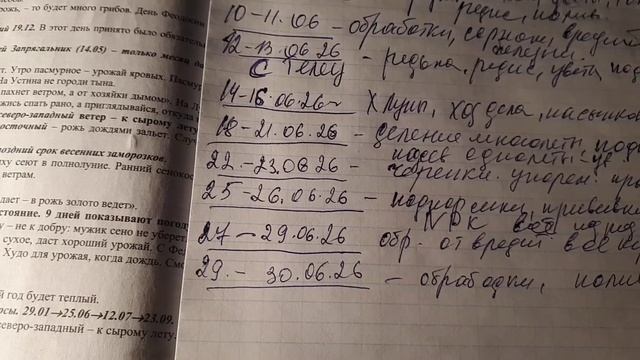 рожь, – то будет много грибов. День Феодоси
ий 19.12. В этот день принято было обязатель
ей Запрягальник (14.05) – только месяц
т. Утро пасмурное – урожай яровых. Пасмур
На Устина не городи тына.
пахнет ветром, а от хозяйки дымом». На Л
жись спать рано, а приглядывайся, откуда
северо-западный ветер – к сырому лету
восточный – рожь дождями зальет. Случ
оздний срок весенних заморозков.
ху сеют в полнолуние. Ранний сенокос
ветрам.
дает – в рожь золото ведет».
стояние. 9 дней показывают погоду
у – не к добру: мужик сено не уберет
сухое, даст хороший урожай. С Фе
Худо для урожая, когда дождь. Смо
й год будет теплый.
сы. 29.01→25.06→12.07→23.09.
северо-западный – к сырому лету.
редис, полив
10-11.06 - обработки, сорняк, вредит
12-13.06.26 - редька, редис, цветы, под
С Телец зелени
14-16.06.26 ход дела
18-21.06.26 - деление многолетн, подв
посев однолетн.
22.-23.08 26 - черенки. укорен.
25-26.06.26 - подкормки, прививки
NPK
27-29.06.26 обр. от вредит
29.- 30.06.26 - обработки, полив